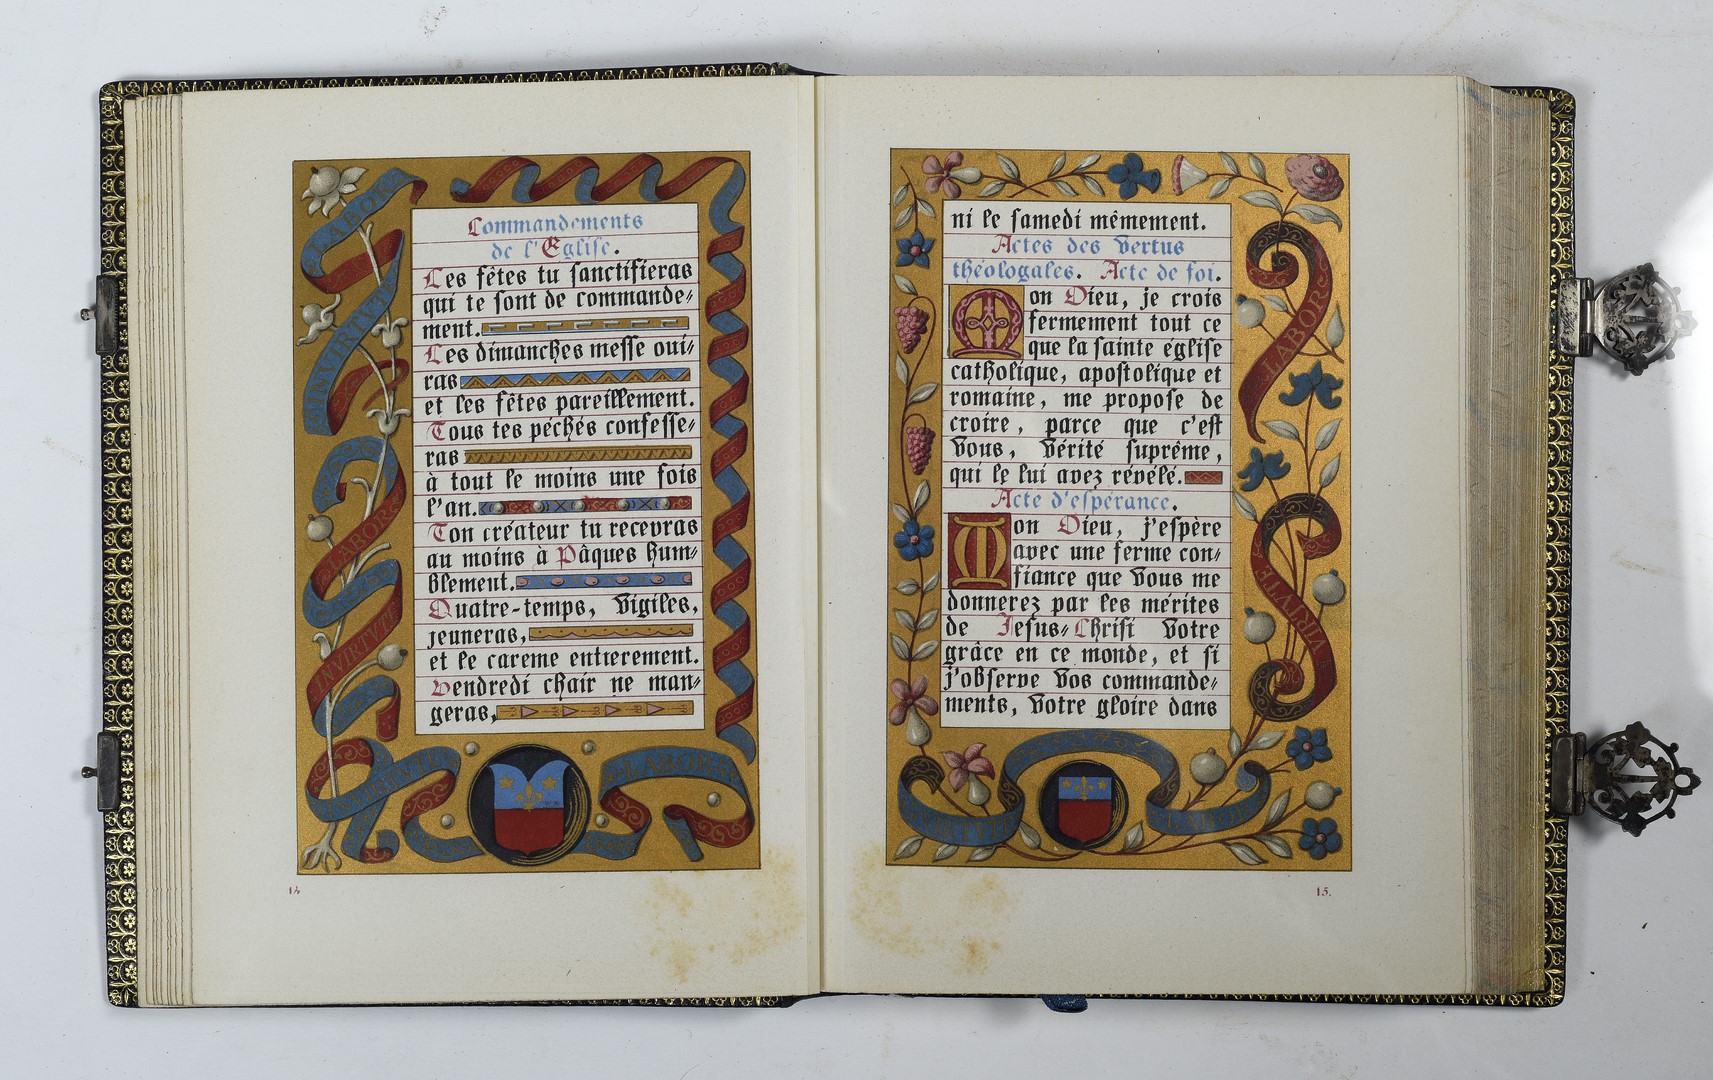 Commandements
de l'Eglise.
Les fêtes tu sanctifieras
qui te sont de commande-
ment.
Les dimanches messe oui-
ras
et les fêtes pareillement.
Tous tes péchés confesse-
ras
à tout le moins une fois
l'an.
Ton créateur tu recevras
au moins à Pâques hum-
blement.
Quatre-temps, Vigiles,
jeuneras,
et le careme entierement.
Vendredi chair ne man-
geras,
LABOR
INVIRTVTE
LABOR
INVIRTVTE
LABOR
14
ni le samedi mêmement.
Actes des Vertus
théologales. Acte de foi.
Mon Dieu, je crois
fermement tout ce
que la sainte église
catholique, apostolique et
romaine, me propose de
croire, parce que c'est
Vous, Vérité suprême,
qui le lui avez révélé.
Acte d'espérance.
Mon Dieu, j'espère
avec une ferme con-
fiance que Vous me
donnerez par les mérites
de Jesus-Christ Votre
grâce en ce monde, et si
j'observe Vos commande-
ments, Votre gloire dans
LABOR
VIRTVTE
LABOR
15.